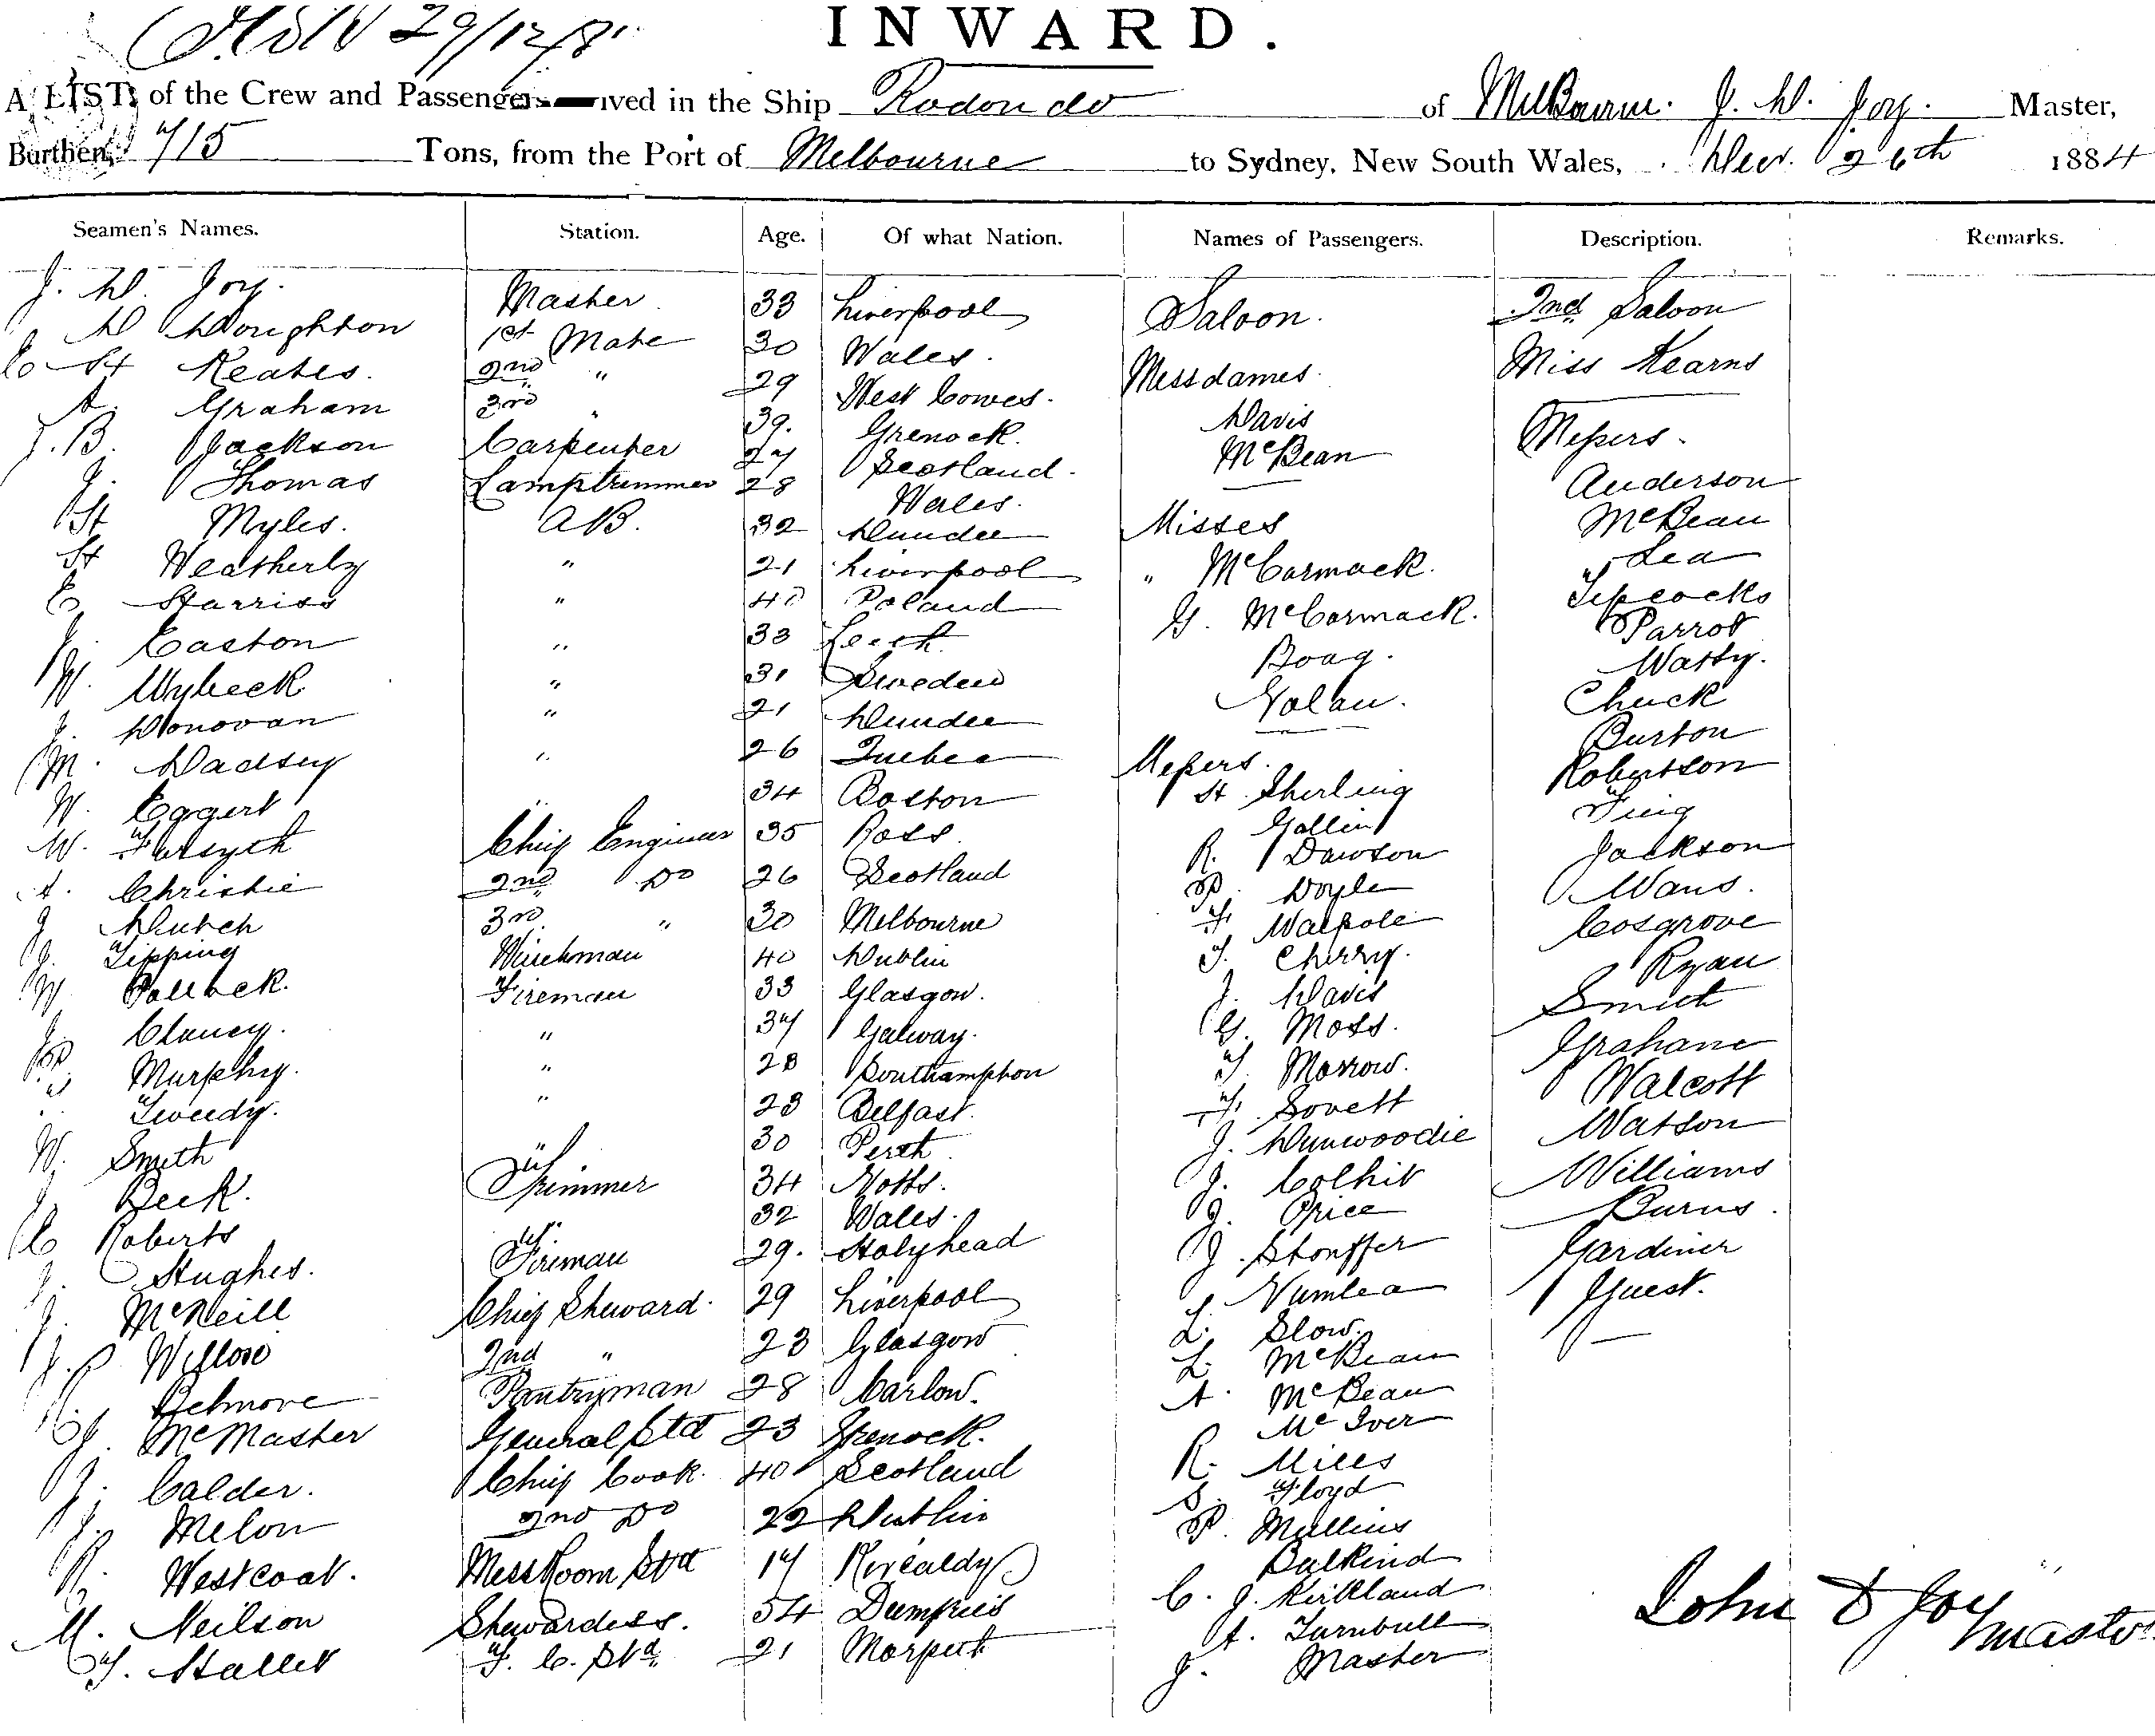 INWARD.
A LIST of the Crew and Passengers ived in the Ship Rodondo of Melbourne. J. D. Joy. Master,
Burthen, 715 Tons, from the Port of Melbourne to Sydney, New South Wales, Decr. 26th 1884
Seamen's Names. Station. Age. Of what Nation. Names of Passengers. Description. Remarks.
J. D. Joy. Master 33 Liverpool Saloon. 2nd Saloon
D Doughton 1st Mate 30 Wales. Messdames. Miss Kearns
E H Keates. 2nd " 29 West Cowes. Davis Messrs.
A. Graham 3rd " 39. Grenock. McBean Anderson
J. B. Jackson Carpenter 27 Scotland. Misses McBean
J. Thomas Lamptrimmer 28 Wales. " McCormack. Lea
H Myles. AB. 32 Dundee G. McCormack. Tipcocks
H Weatherly " 21 Liverpool Boag. Parrot
C Harriss " 40 Poland Nolan. Watty.
J. Easton " 33 Leith Messrs. Chuck
W. Wybeck " 31 Sweden H. Sherling Burton
J. Donovan " 21 Dundee Gollin Robertson
M. Dadsey " 26 Quebec R. Dawson Ting
W. Eggert " 34 Boston P. Doyle Jackson
W. Forsyth Chief Engineer 35 Ross. F. Walpole Wans.
A. Christie 2nd Do 26 Scotland T. Cherry. Cosgrove
J Dutch 3rd " 30 Melbourne J. Davis Ryan
J. Tipping Winchman 40 Dublin G. Moss. Smith
W Pollock. Fireman 33 Glasgow. T. Morrow. Grahame
J. Clancy. " 37 Galway. F. Sovett Walcott
P Murphy. " 28 Southampton J. Dunwoodie Watson
Tweedy. " 23 Belfast. J. Colhit Williams
W. Smith " 30 Perth J. Price Burns.
J. Beck. Trimmer 34 Notts. J. Stouffer Gardiner
C Roberts " 32 Wales. Numlea Guest.
J. Hughes. Fireman 29. Holyhead L. Slow.
J. McNeill Chief Steward. 29 Liverpool L. McBean
J. P. Willow 2nd " 23 Glasgow A. McBean
Belmore Pantryman 28 Carlow. McIver
J. McMaster General Std 23 Grenock. R. Miles
J. Calder. Chief Cook. 40 Scotland S. Floyd
J. Melon 2nd Do 22 Dublin P. Mullins
R. Westcoat. MessRoom Std 17 Kircaldy Bulkind
M. Neilson Stewardess. 54 Dumfries C. J. Kirkland
T. Hallet F. C. Std 21 Morpeth A. Turnbull
J. Master
John D Joy
master